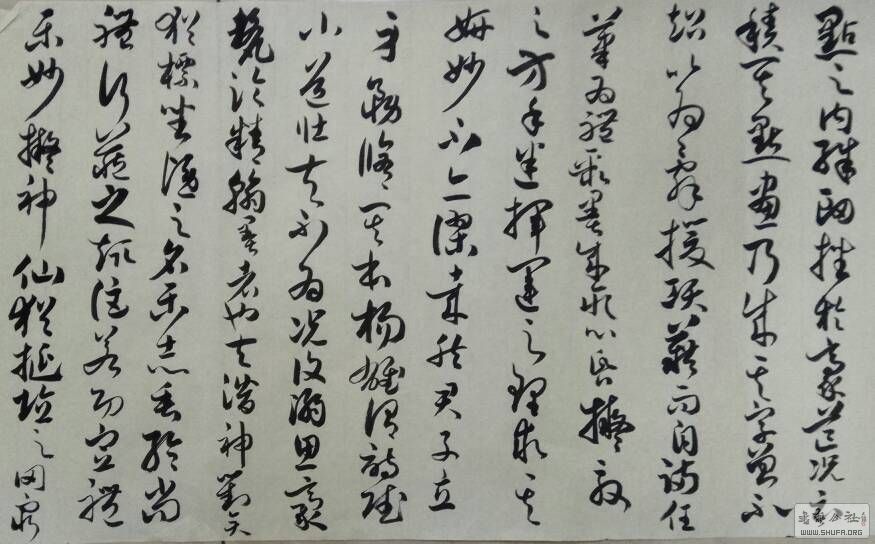 點之內殊衄挫於豪芒況云
積其點畫乃成其字曾不
超以為辭援項籍而自滿任
筆為體聚墨成形心昏擬效
之方手迷揮運之理求其
妍妙不亦謬哉然君子立
身務脩其本楊雄謂詩賦
小道壯夫不為況復溺思豪
氂淪精翰墨者也夫潛神對奕
猶標坐隱之名樂志垂綸尚
體行藏之趣詎若功宣禮
樂妙擬神仙猶埏埴之罔窮
书法公社
WWW.SHUFA.ORG